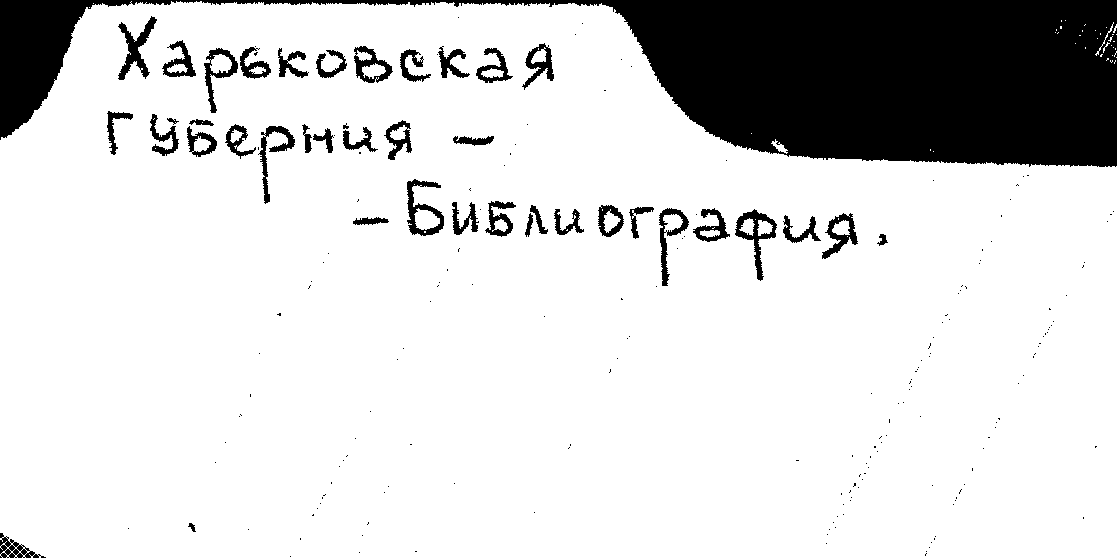 Харьковская
Губерния –
– Библиография.